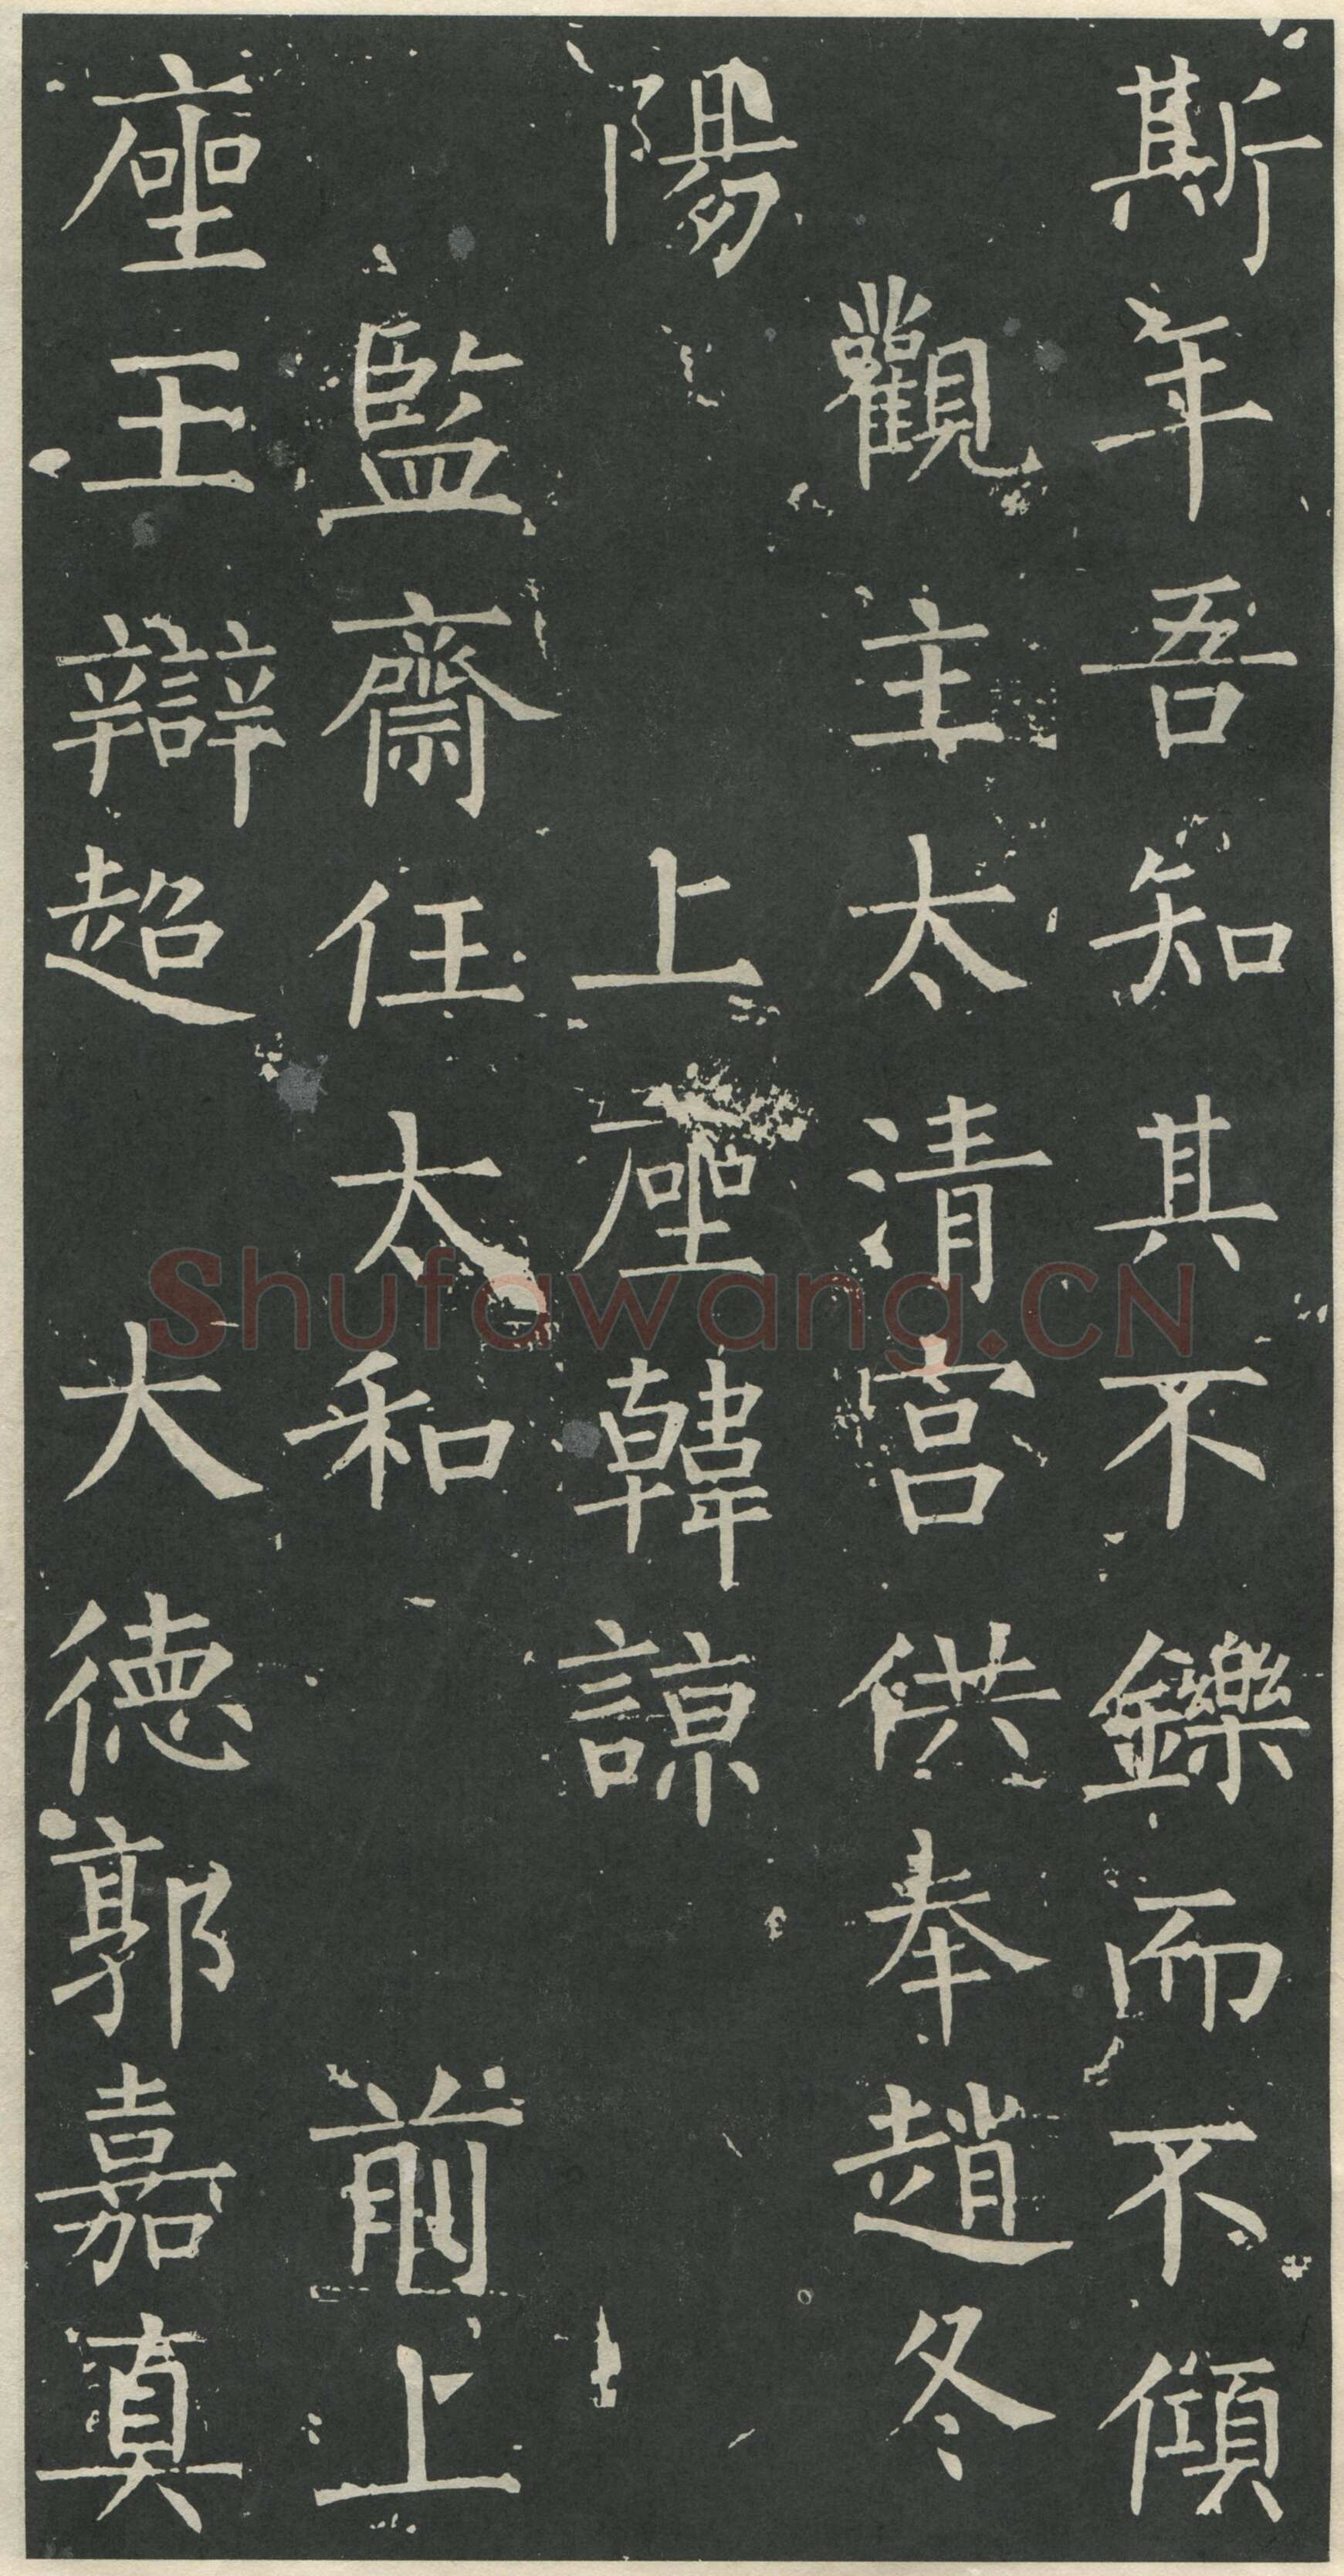 斯年吾知其不鑠而不傾
觀主太清宮供奉趙冬
陽上座韓諒
監齋任太和前上
座王辯超大德郭嘉真
Shufawang.CN